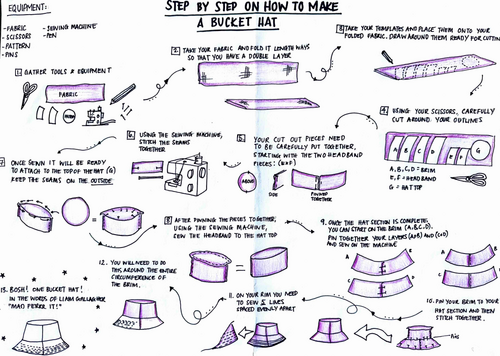 STEP BY STEP ON HOW TO MAKE
A BUCKET HAT
EQUIPMENT:
- FABRIC
- SCISSORS
- PATTERN
- PINS
- SEWING MACHINE
- PEN
1. GATHER TOOLS & EQUIPMENT
FABRIC
2. TAKE YOUR FABRIC AND FOLD IT LENGTH WAYS
SO THAT YOU HAVE A DOUBLE LAYER
3. TAKE YOUR TEMPLATES AND PLACE THEM ONTO YOUR
FOLDED FABRIC. DRAW AROUND THEM READY FOR CUTTING
4. USING YOUR SCISSORS, CAREFULLY
CUT AROUND YOUR OUTLINES
A B C D
E F
G
A, B, C, D = BRIM
E, F = HEADBAND
G = HAT TOP
5. YOUR CUT OUT PIECES NEED
TO BE CAREFULLY PUT TOGETHER,
STARTING WITH THE TWO HEADBAND
PIECES: (E+F)
ABOVE
SIDE
PINNED TOGETHER
6. USING THE SEWING MACHINE,
STITCH THE SEAMS
TOGETHER
7. ONCE SEWN IT WILL BE READY
TO ATTACH TO THE TOP OF THE HAT (G)
KEEP THE SEAMS ON THE OUTSIDE
8. AFTER PINNING THE PIECES TOGETHER,
USING THE SEWING MACHINE,
SEW THE HEADBAND TO THE HAT TOP
9. ONCE THE HAT SECTION IS COMPLETE,
YOU CAN START ON THE BRIM (A,B,C,D).
PIN TOGETHER YOUR LAYERS (A+B) AND (C+D)
AND SEW ON THE MACHINE
A B
C D
10. PIN YOUR BRIM TO YOUR
HAT SECTION AND THEN
STITCH TOGETHER.
PINS
11. ON YOUR RIM YOU NEED
TO SEW LINES
SPACED EVENLY APART
12. YOU WILL NEED TO DO
THIS AROUND THE ENTIRE
CIRCUMFERENCE OF
THE BRIM.
13. BOSH! ONE BUCKET HAT!
IN THE WORDS OF LIAM GALLAGHER